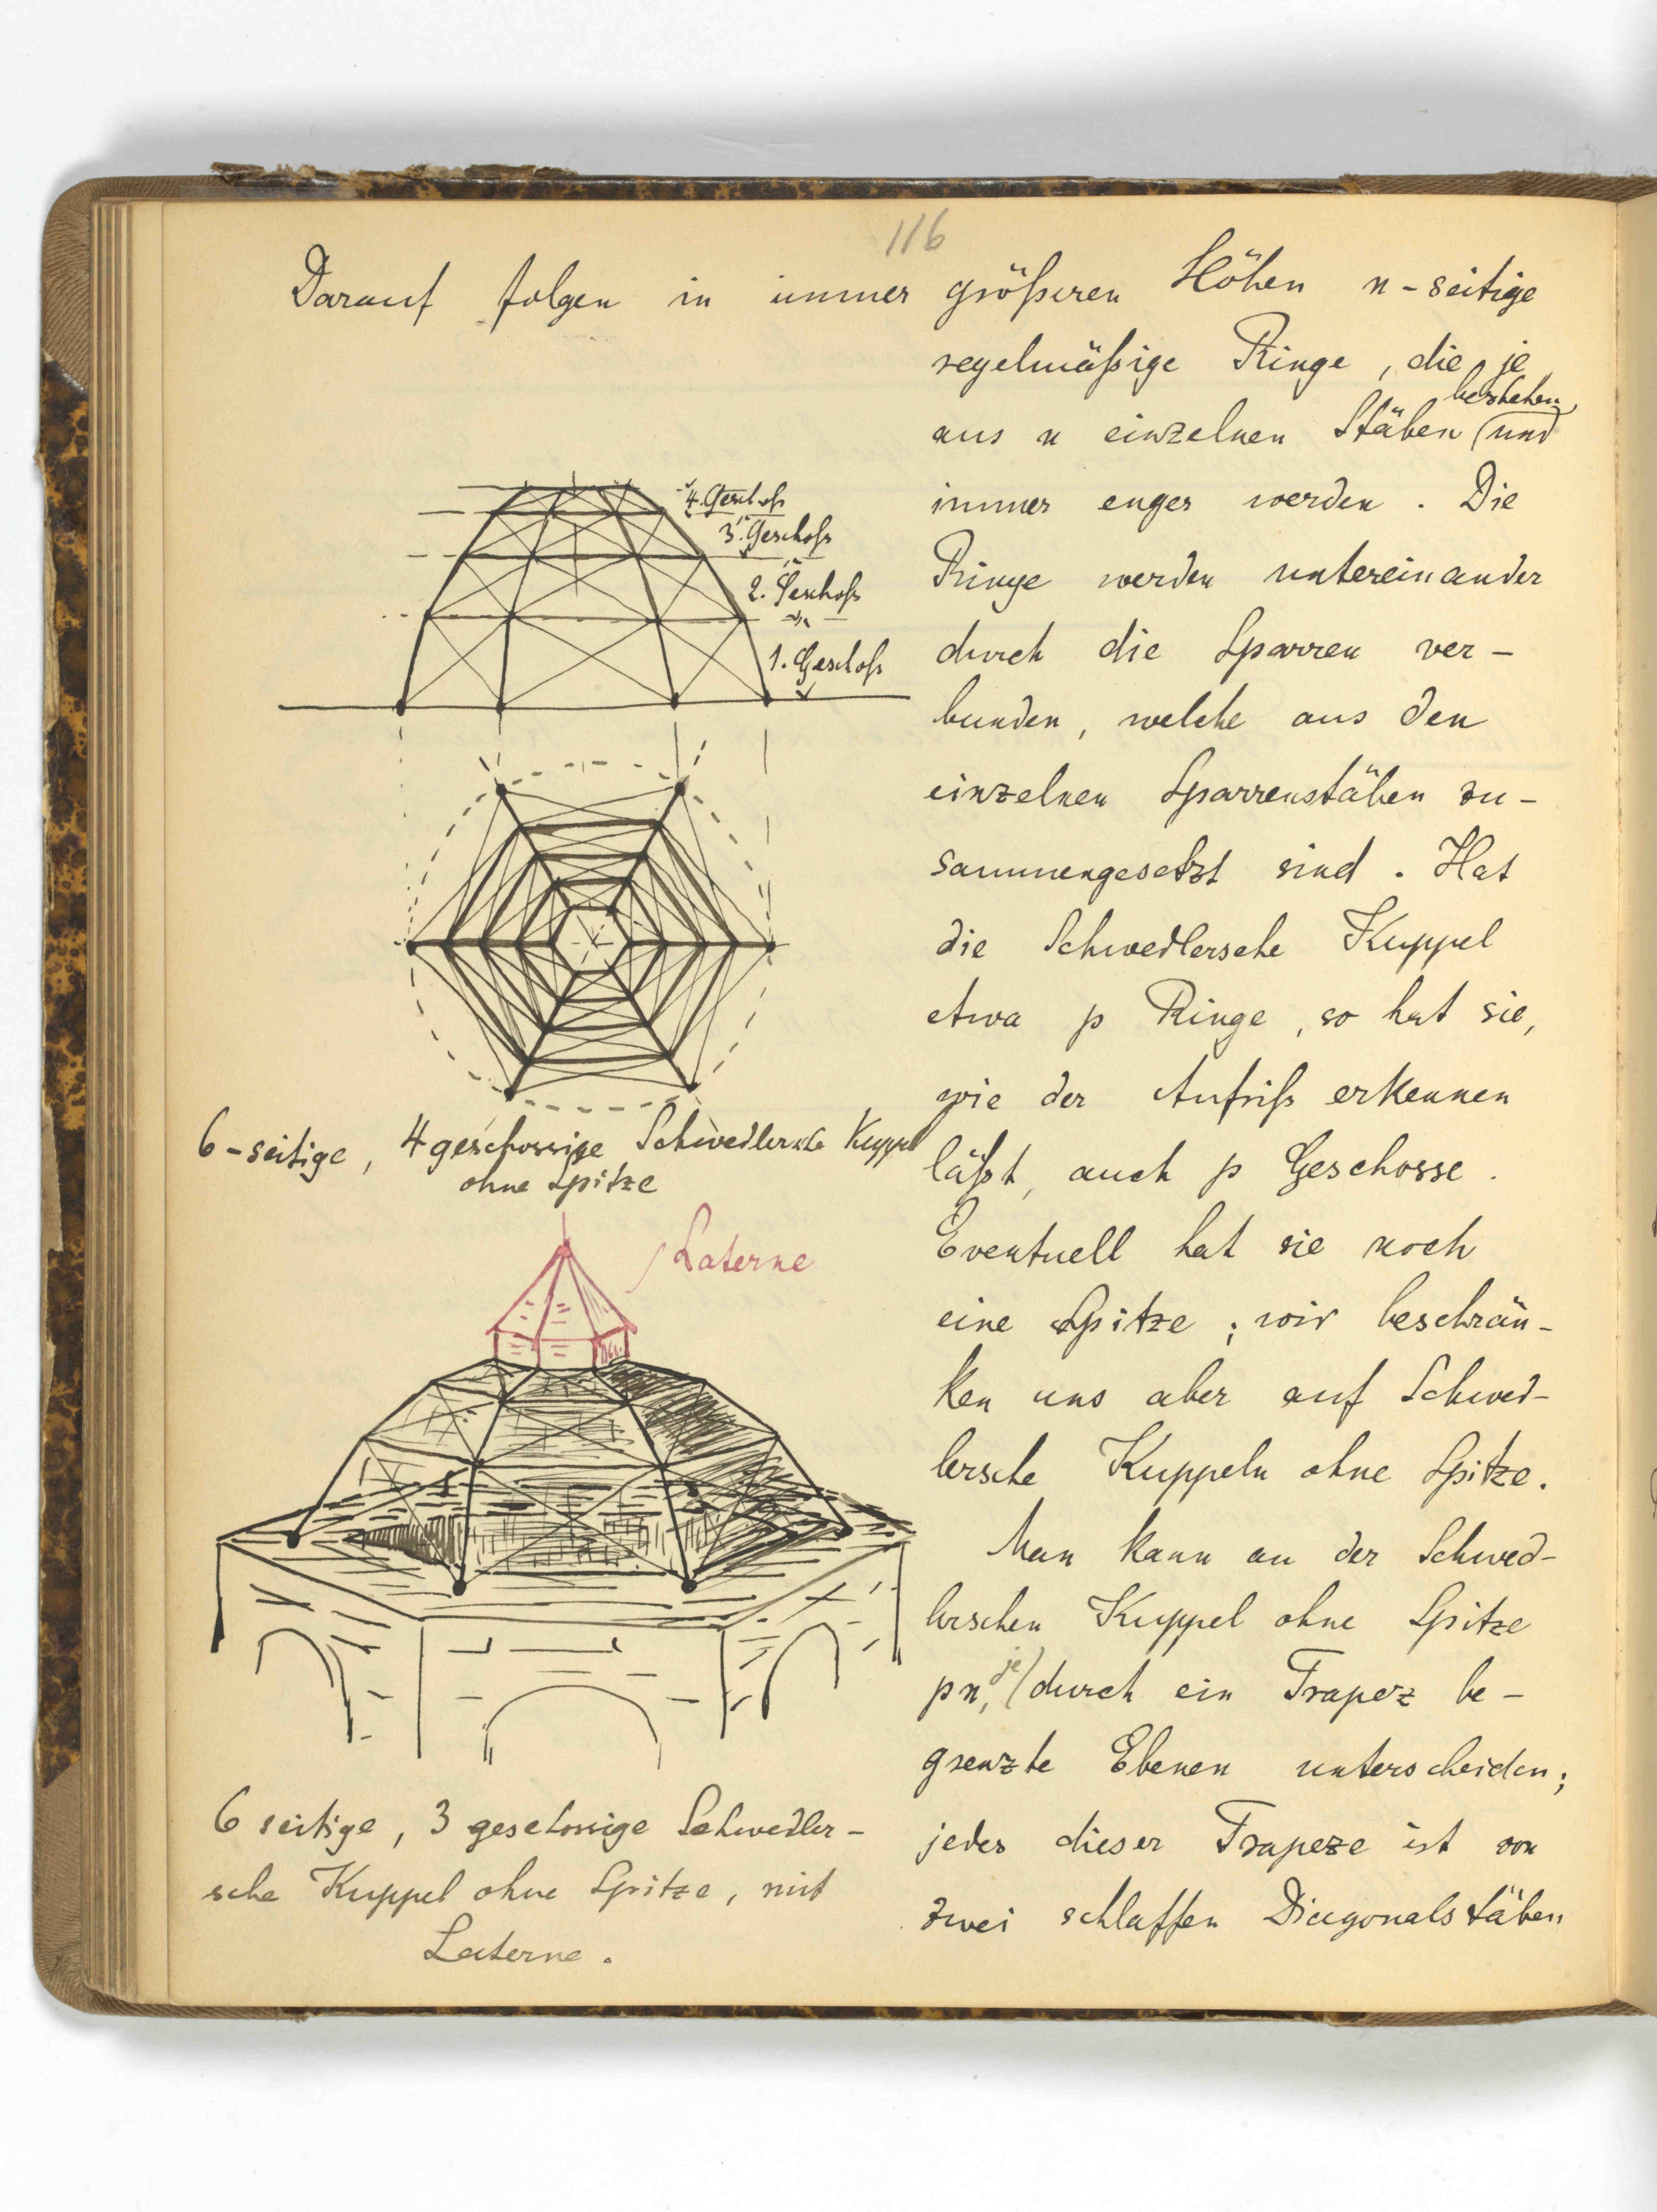 116
Darauf folgen in immer größeren Höhen n-seitige
regelmäßige Ringe, die je
bestehen
aus n einzelnen Stäben und
immer enger werden. Die
Ringe werden untereinander
durch die Sparren ver-
bunden, welche aus den
einzelnen Sparrenstäben zu-
sammengesetzt sind. Hat
die Schwedlersche Kuppel
etwa p Ringe, so hat sie,
wie der Aufriß erkennen
läßt, auch p Geschosse.
Eventuell hat sie noch
eine Spitze; wir beschrän-
ken uns aber auf Schwed-
lersche Kuppeln ohne Spitze.
Man kann an der Schwed-
lerschen Kuppel ohne Spitze
je
pn, durch ein Trapez be-
grenzte Ebenen unterscheiden;
jedes dieser Trapeze ist von
zwei schlaffen Diagonalstäben
4. Geschoß
3. Geschoß
2. Geschoß
1. Geschoß
6-seitige, 4 geschossige Schwedlersche Kuppel
ohne Spitze
Laterne
6 seitige, 3 geschossige Schwedler-
sche Kuppel ohne Spitze, mit
Laterne.